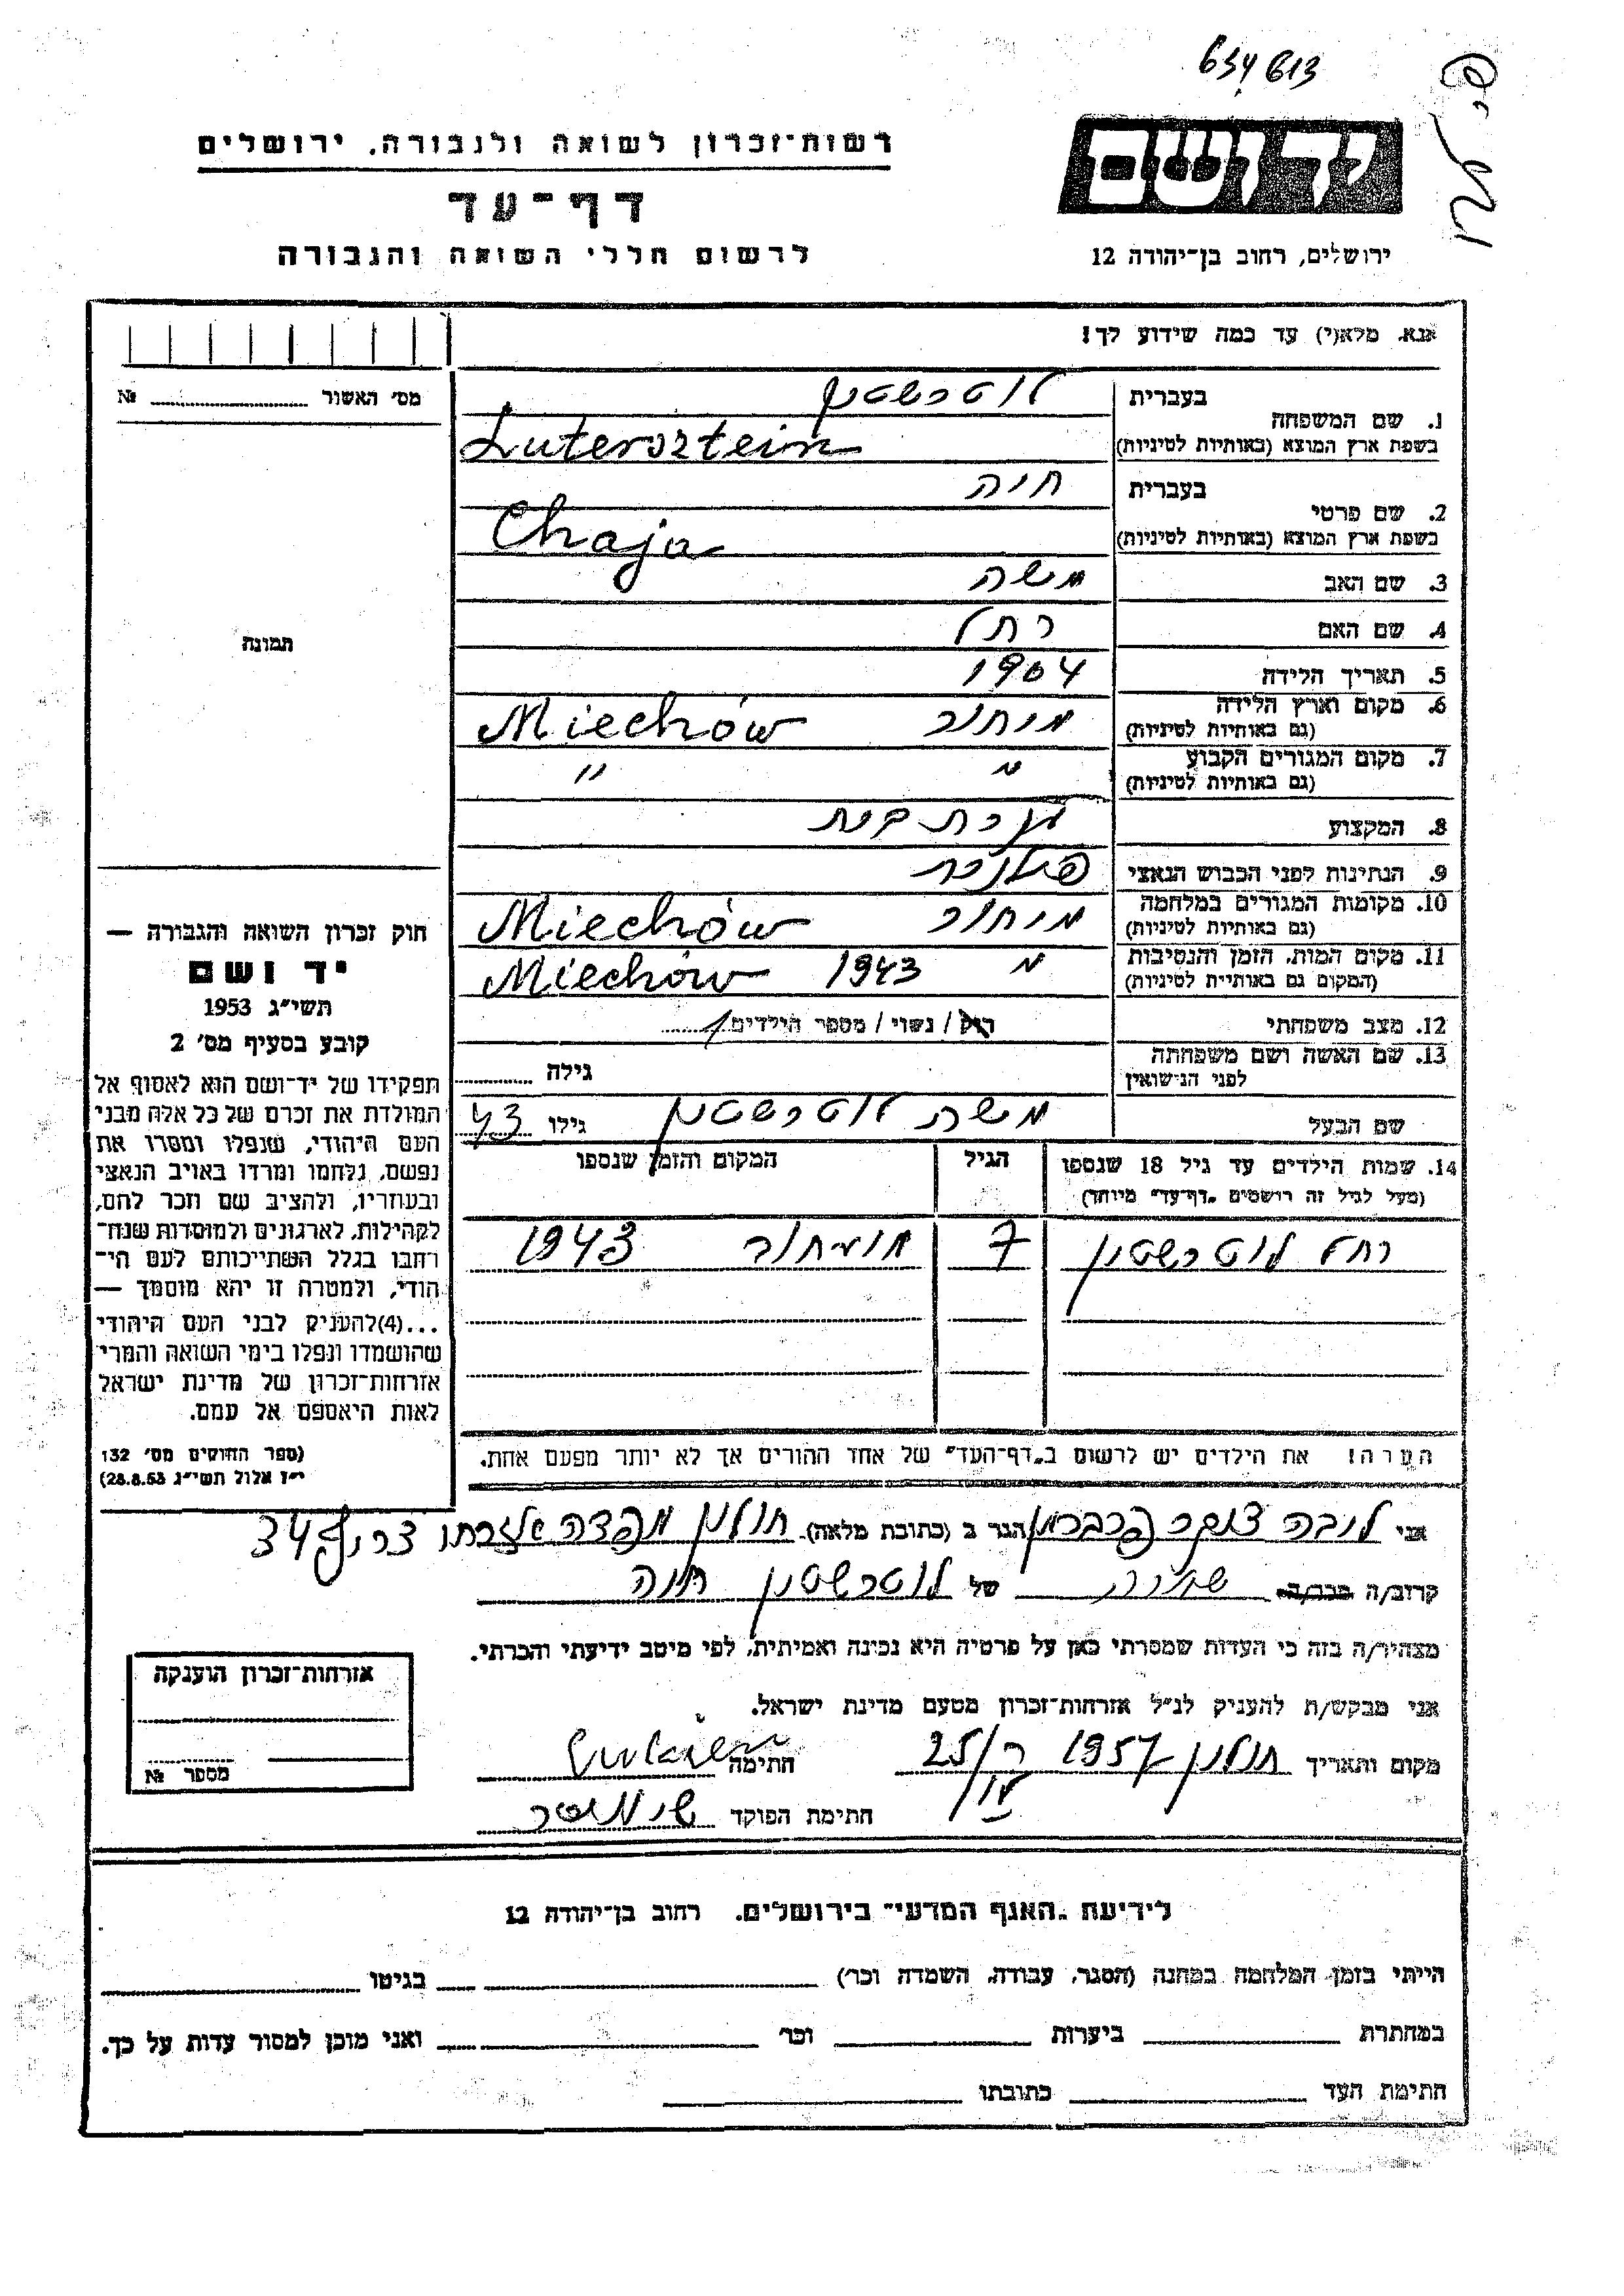 634613
רשות־זכרון לשואה ולגבורה, ירושלים
יד ושם
דף־עד
לרשום חללי השואה והגבורה
ירושלים, רחוב בן־יהודה 12
אנא, מלא(י) עד כמה שידוע לך!
מס׳ האשור № 
1. שם המשפחה
בעברית לוטרשטין
בשפת ארץ המוצא (באותיות לטיניות) Lutersztein
2. שם פרטי
בעברית חיה
בשפת ארץ המוצא (באותיות לטיניות) Chaja
3. שם האב משה
4. שם האם רחל
תמונה
5. תאריך הלידה 1904
6. מקום וארץ הלידה מיחוב Miechów
(גם באותיות לטיניות)
7. מקום המגורים הקבוע " "
(גם באותיות לטיניות)
8. המקצוע עקרת בית
9. הנתינות לפני הכבוש הנאצי פולנית
10. מקומות המגורים במלחמה מיחוב Miechów
(גם באותיות לטיניות)
11. מקום המות, הזמן והנסיבות " 1943 Miechów
(המקום גם באותיות לטיניות)
12. מצב משפחתי רווק / נשוי / מספר הילדים 1
13. שם האשה ושם משפחתה
לפני הנישואין גילה
שם הבעל משה לוטרשטין גילו 43
14. שמות הילדים עד גיל 18 שנספו הגיל המקום והזמן שנספו
(מעל לגיל זה רושמים „דף־עד" מיוחד)
רחל לוטרשטין 7 1943
הערה! את הילדים יש לרשום ב„דף־העד" של אחד ההורים אך לא יותר מפעם אחת.
חוק זכרון השואה והגבורה —
יד ושם
תשי״ג 1953
קובע בסעיף מס׳ 2
תפקידו של יד־ושם הוא לאסוף אל
המולדת את זכרם של כל אלה מבני
העם היהודי, שנפלו ומסרו את
נפשם, נלחמו ומרדו באויב הנאצי
ובעוזריו, ולהציב שם וזכר להם,
לקהילות, לארגונים ולמוסדות שנח־
רחבו בגלל השתייכותם לעם הי־
הודי, ולמטרה זו יהא מוסמך —
...(4)להעניק לבני העם היהודי
שהושמדו ונפלו בימי השואה והמרי
אזרחות־זכרון של מדינת ישראל
לאות היאספם אל עמם.
(ספר החוקים מס׳ 132
י״ז אלול תשי״ג 28.8.53)
אני ליבה צוקר הגר ב (כתובת מלאה) חולון צריף 34
קרוב/ה מכר/ה של לוטרשטין חיה
מצהיר/ה בזה כי העדות שמסרתי כאן על פרטיה היא נכונה ואמיתית, לפי מיטב ידיעתי והכרתי.
אני מבקש/ת להעניק לנ״ל אזרחות־זכרון מטעם מדינת ישראל.
מקום ותאריך חולון 1957 25/ חתימה
חתימת הפוקד
אזרחות־זכרון הוענקה
מספר №
לידיעת „האגף המדעי" בירושלים, רחוב בן־יהודה 12
הייתי בזמן המלחמה במחנה (הסגר, עבודה, השמדה וכו׳) בגיטו
במחתרת ביערות וכו׳ ואני מוכן למסור עדות על כך.
חתימת העד כתובתו